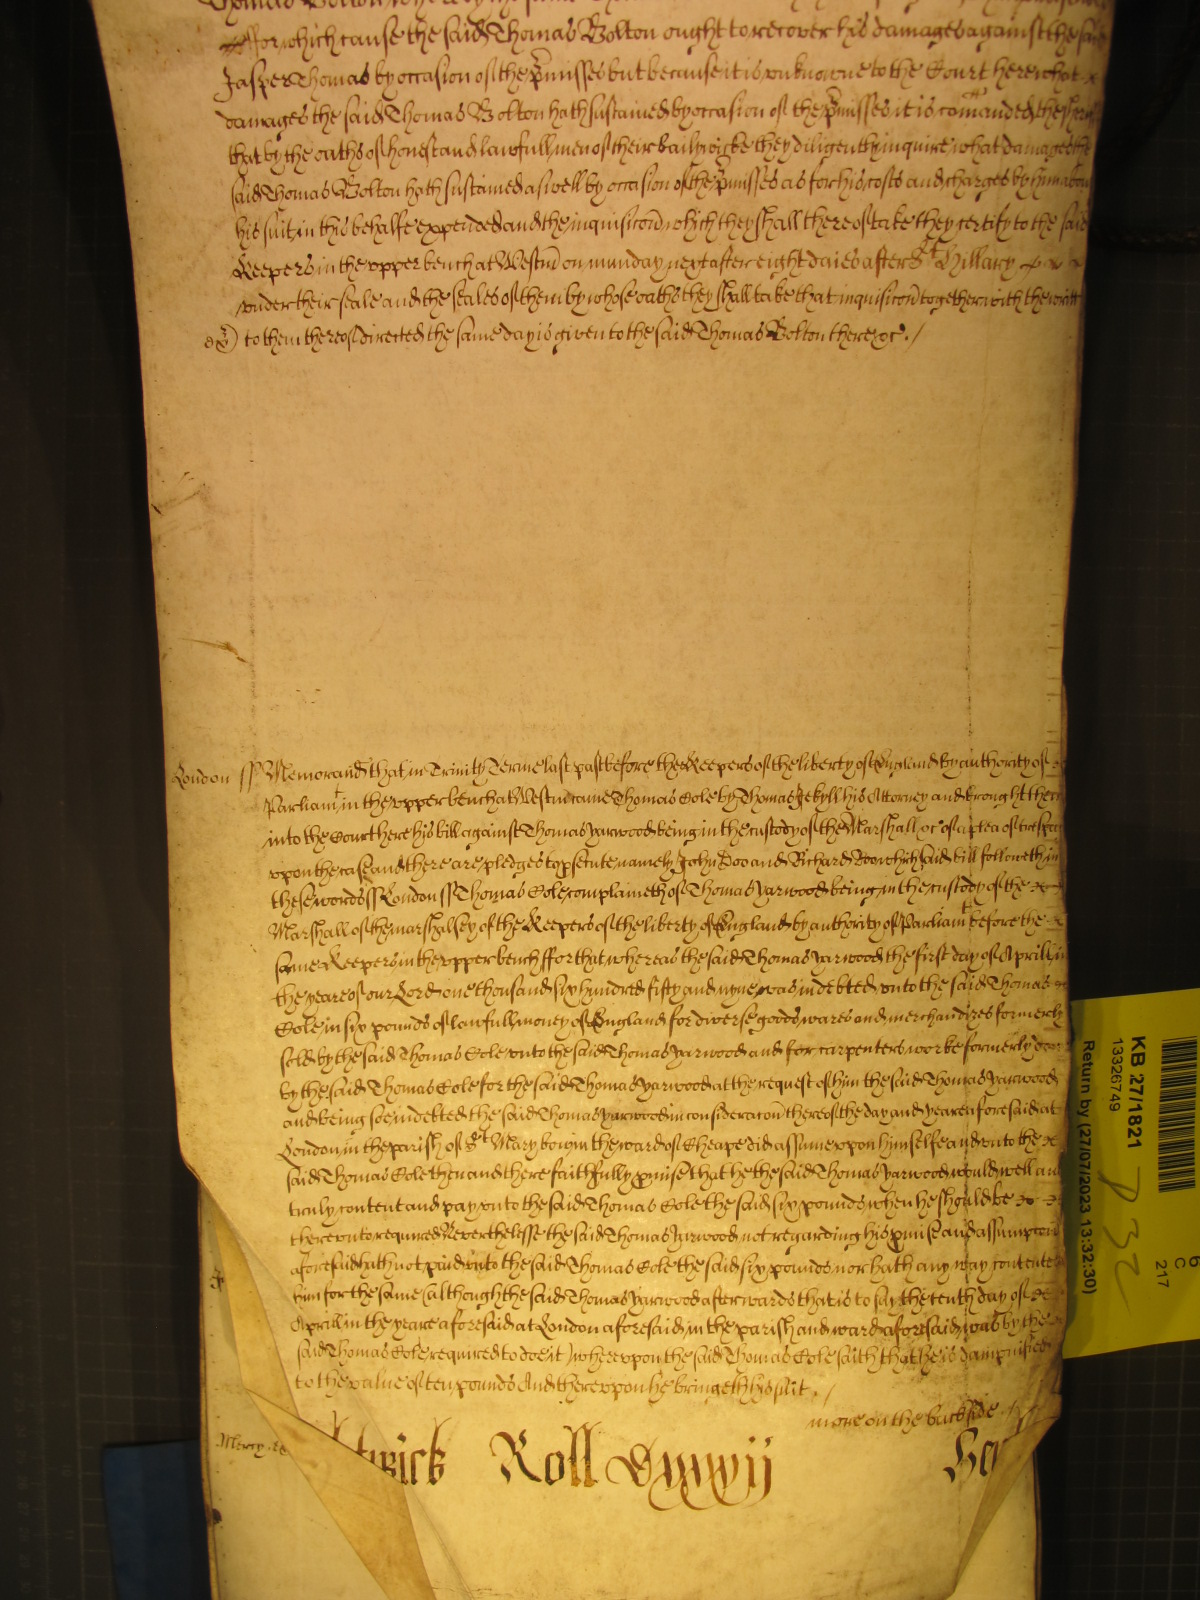 ffor which cause the said Thomas Bolton ought to recover his damages against the said
Jasper Thomas by occasion of the p'misses but because it is unknowne to the Court here what
damages the said Thomas Bolton hath sustained by occasion of the p'misses it is com'anded the
that by the oaths of honest and lawfull men of their bailywicke they diligently inquire what damages the
said Thomas Bolton hath sustained aswell by occasion of the p'misses as for his costs and charges by him about
his suit in this behalfe expended and the inquisic'on which they shall thereof take they certify to the said
Keepers in the upper bench at Westm' on munday next after eight daies after St Hillary
under their seale and the seales of them by whose oaths they shall take that inquisic'on together with the writt
to them thereof directed the same day is given to the said Thomas Bolton there &c. /
London ss Memorand' that in Trinity Terme last past before the Keepers of the liberty of England by authority of
Parliamt in the upper bench at Westm' came Thomas Cole by Thomas Jekyll his Attorney and brought there
into the Court here his bill against Thomas Yarwood being in the custody of the Marshall &c of a plea of trespas
upon the case and there are pledges to p'secute namely John Doo and Richard Roo which said bill followeth in
these words ss London ss Thomas Cole complaineth of Thomas Yarwood being in the custody of the
Marshall of the marshalsey of the Keepers of the liberty of England by authority of Parliamt before the
same Keepers in the upper bench ffor that whereas the said Thomas Yarwood the first day of Aprill in
the yeare of our Lord one thousand six hundred fifty and nyne was indebted unto the said Thomas
Cole in six pounds of lawfull money of England for diverse goods wares and merchandizes formerly
sold by the said Thomas Cole unto the said Thomas Yarwood and for carpenters worke formerly done
by the said Thomas Cole for the said Thomas Yarwood at the request of him the said Thomas Yarwood
and being soe indebted the said Thomas Yarwood in considerac'on thereof the day and yeare aforesaid at
London in the parish of St Mary bow in the ward of Cheape did assume upon himselfe and unto the
said Thomas Cole then and there faithfully p'mise that he the said Thomas Yarwood would well and
truly content and pay unto the said Thomas Cole the said six pounds when he should be
thereunto required Neverthelesse the said Thomas Yarwood not regarding his p'mise and assumpc'on
aforesaid hath not paid unto the said Thomas Cole the said six pounds nor hath any way contented
him for the same (although the said Thomas Yarwood afterwards that is to say the tenth day of
Aprill in the yeare aforesaid at London aforesaid in the parish and ward aforesaid was by the
said Thomas Cole required to doe it) whereupon the said Thomas Cole saith that he is dampnified
to the value of ten pounds And thereupon he bringeth his suit. /
more on the backside
Roll
KB 27/1821
13326749
Return by (27/07/2023 13:32:30)
C
217